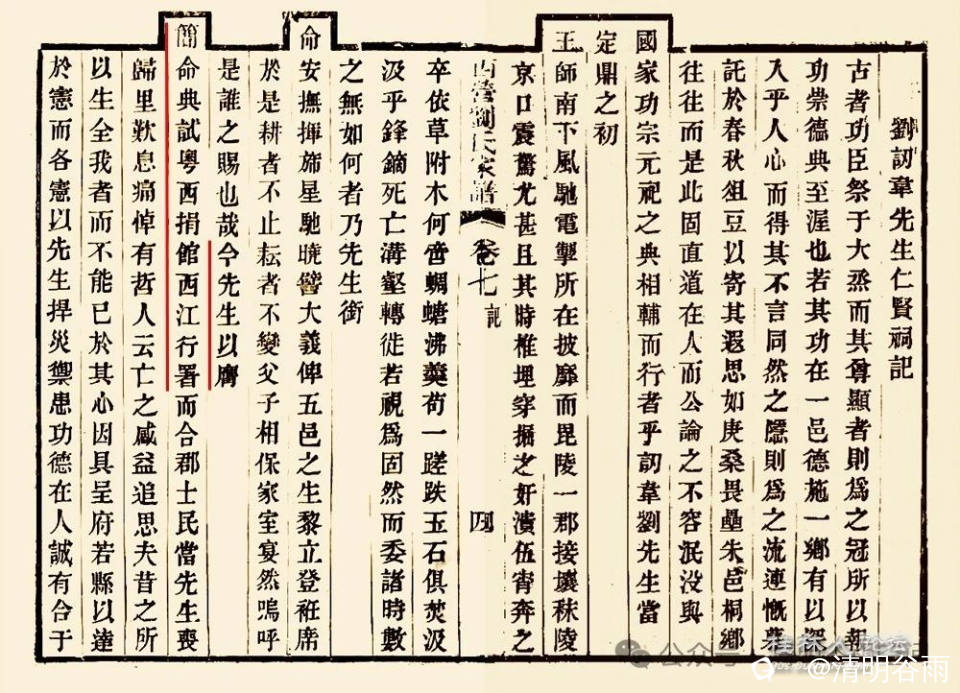 劉訒韋先生仁賢祠記
古者功臣祭于大烝而其尊顯者則爲之冠所以報
功崇德典至渥也若其功在一邑德施一鄉有以深
入乎人心而得其不言同然之隱則爲之流連慨慕
託於春秋俎豆以寄其遐思如庚桑畏壘朱邑桐鄉
往往而是此固直道在人而公論之不容泯沒與
國家功宗元祀之典相輔而行者乎訒韋劉先生當
定鼎之初
王師南下風馳電掣所在披靡而毘陵一郡接壤秣陵
京口震驚尤甚且其時椎埋穿掘之奸潰伍宵奔之
西營劉氏家譜 卷七 記 四
卒依草附木何啻蜩螗沸羹苟一蹉跌玉石俱焚汲
汲乎鋒鏑死亡溝壑轉徙若視爲固然而委諸時數
之無如何者乃先生銜
命安撫揮旆星馳曉譬大義俾五邑之生黎立登袵席
於是耕者不止耘者不變父子相保家室宴然嗚呼
是誰之賜也哉今先生以膺
簡命典試粵西捐館西江行署而合郡士民當先生喪
歸里歎息痛悼有哲人云亡之慼益追思夫昔之所
以生全我者而不能已於其心因具呈府若縣以達
於憲而各憲以先生捍災禦患功德在人誠有合于
公众号
@清明谷雨